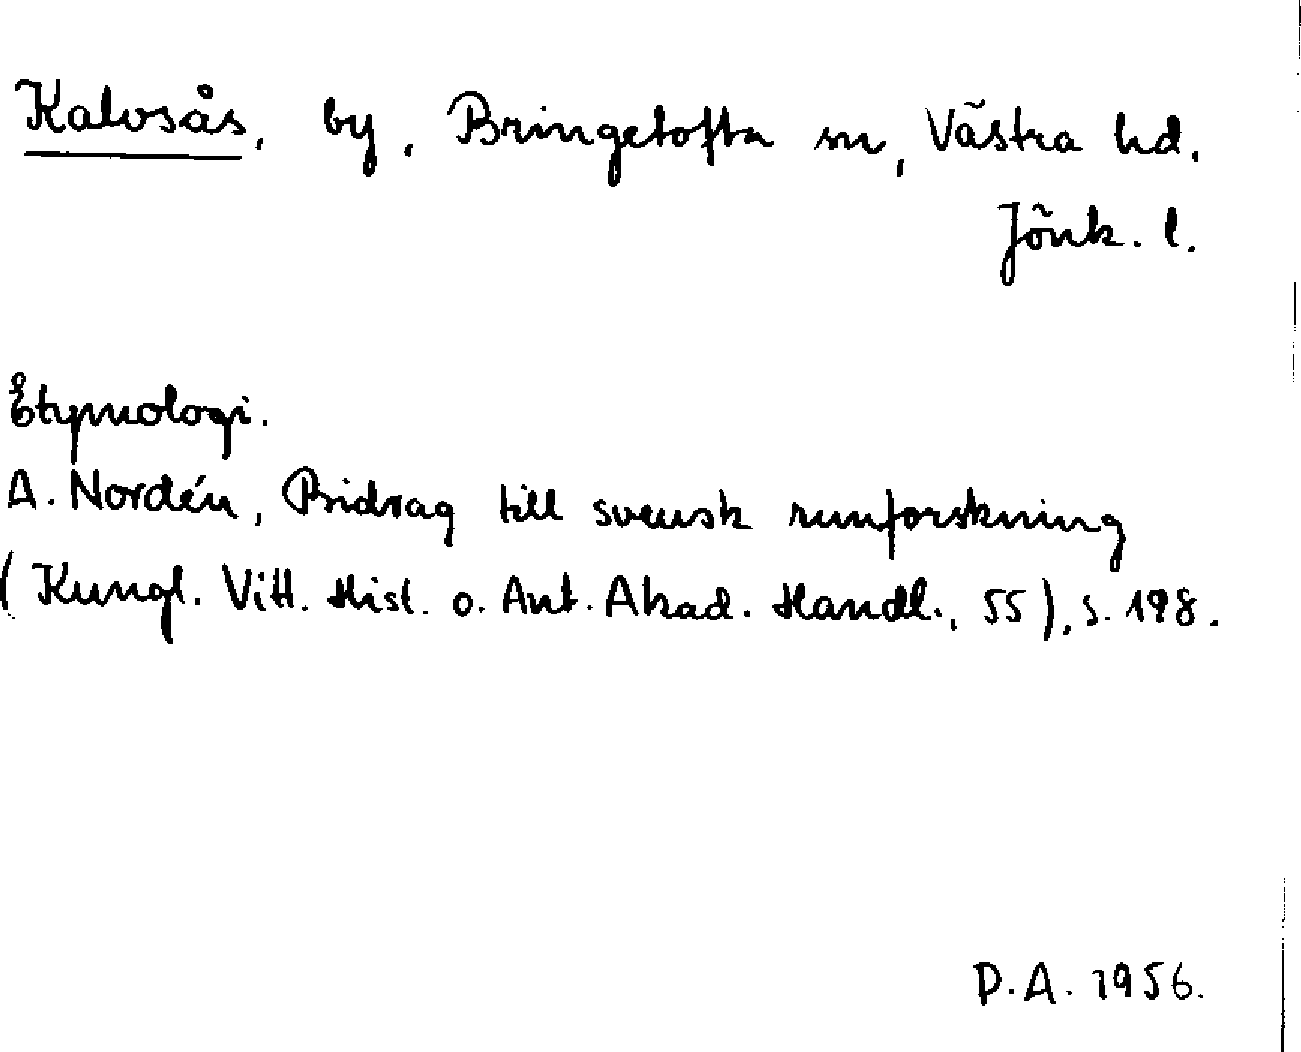 Kalvsås, by, Bringetofta sn, Västra hd.
Jönk. l.
Etymologi.
A. Nordén, Bidrag till svensk runforskning
(Kungl. Vitt. Hist. o. Ant. Akad. Handl., 55), s. 198.
D.A. 1956.